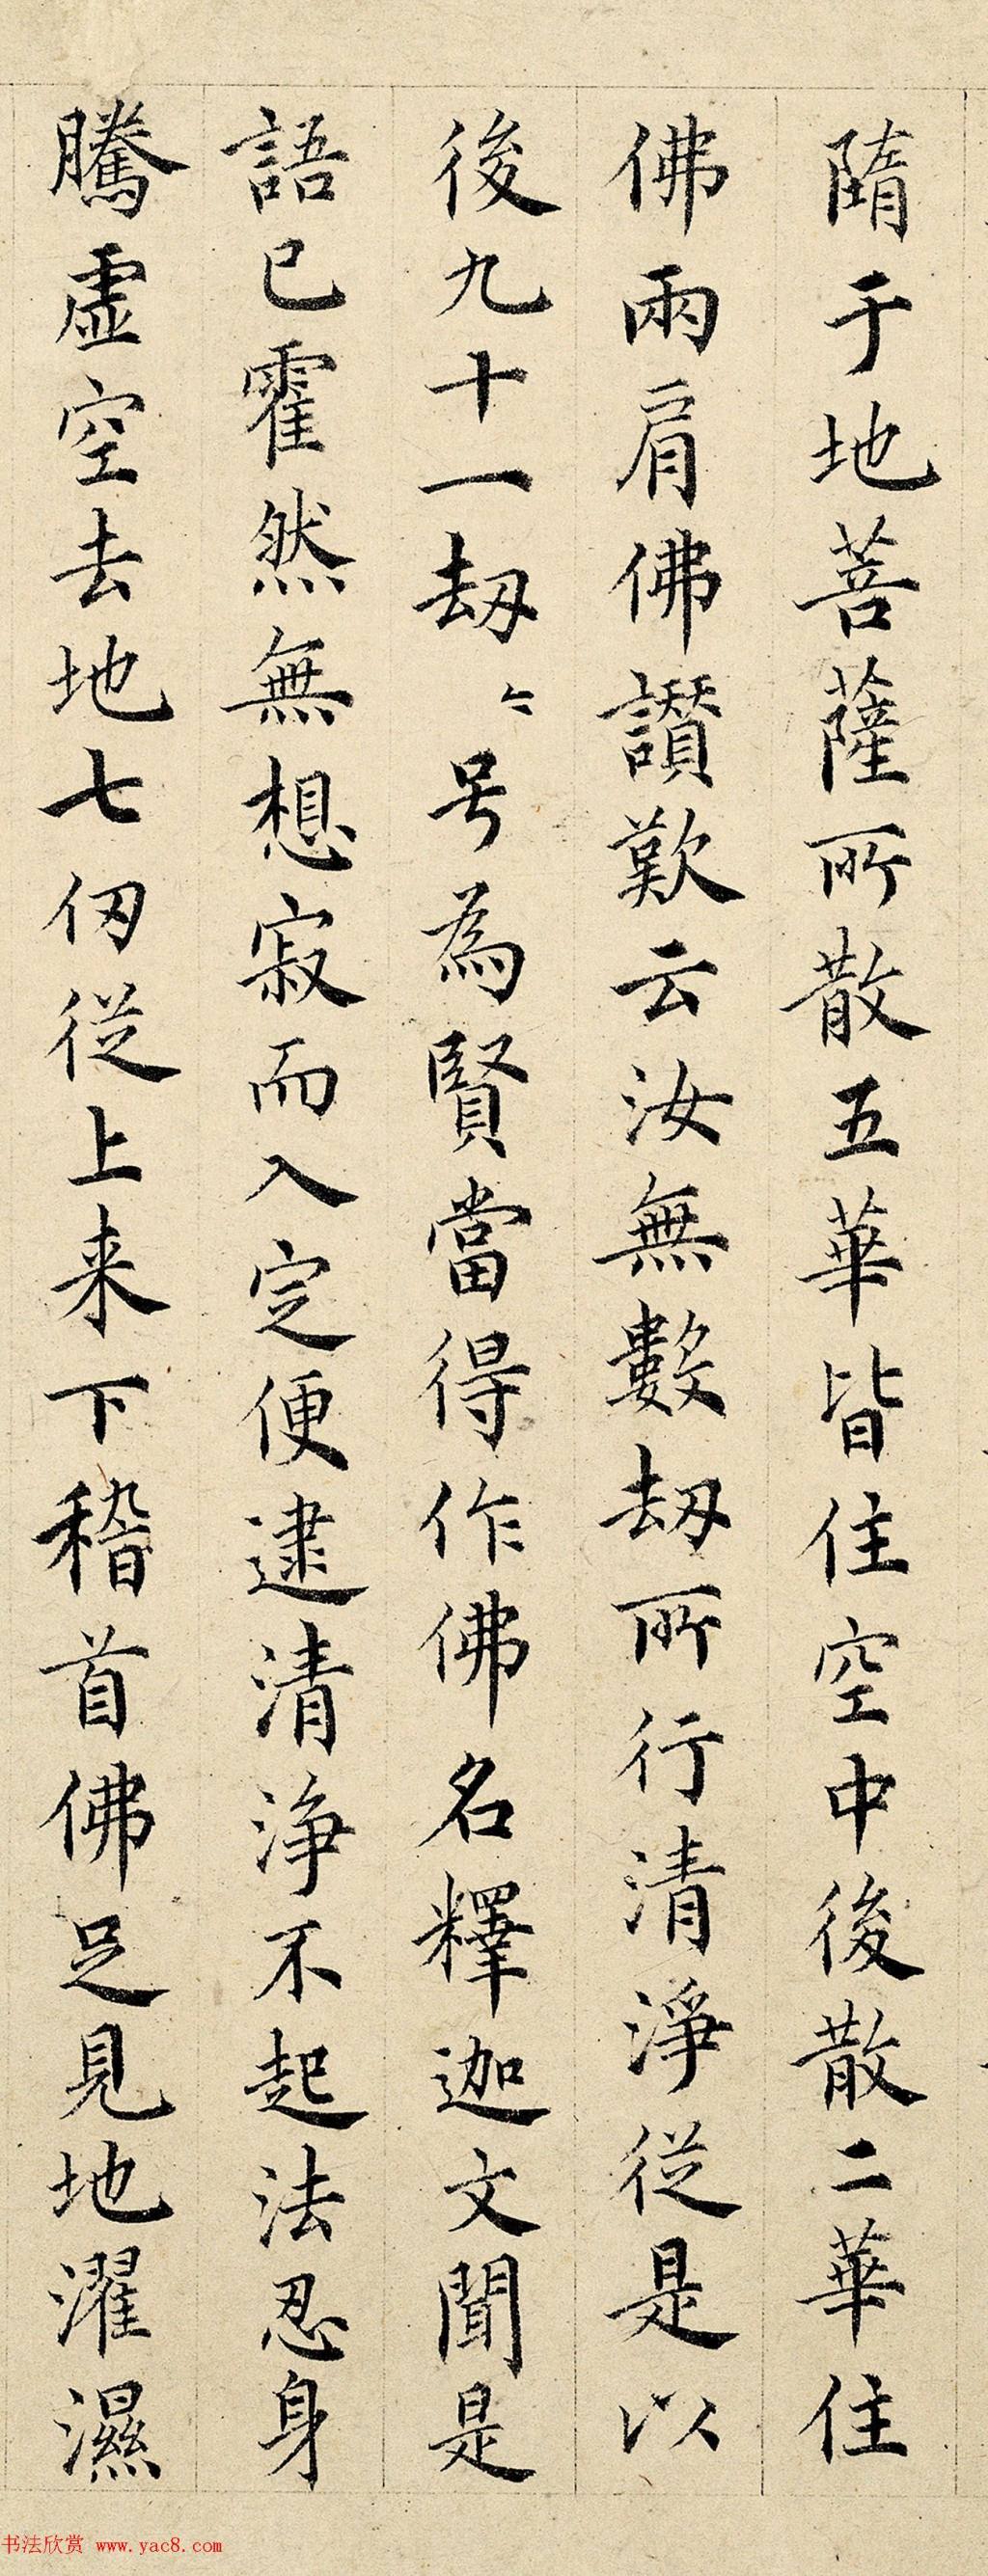 隋于地菩薩所散五華皆住空中後散二華住
佛兩肩佛讃歎云汝無數劫所行清淨從是以
後九十一劫〻号為賢當得作佛名釋迦文聞是
語已霍然無想寂而入定便逮清浄不起法忍身
騰虚空去地七仞從上来下稽首佛足見地濯濕
书法欣赏 www.yac8.com